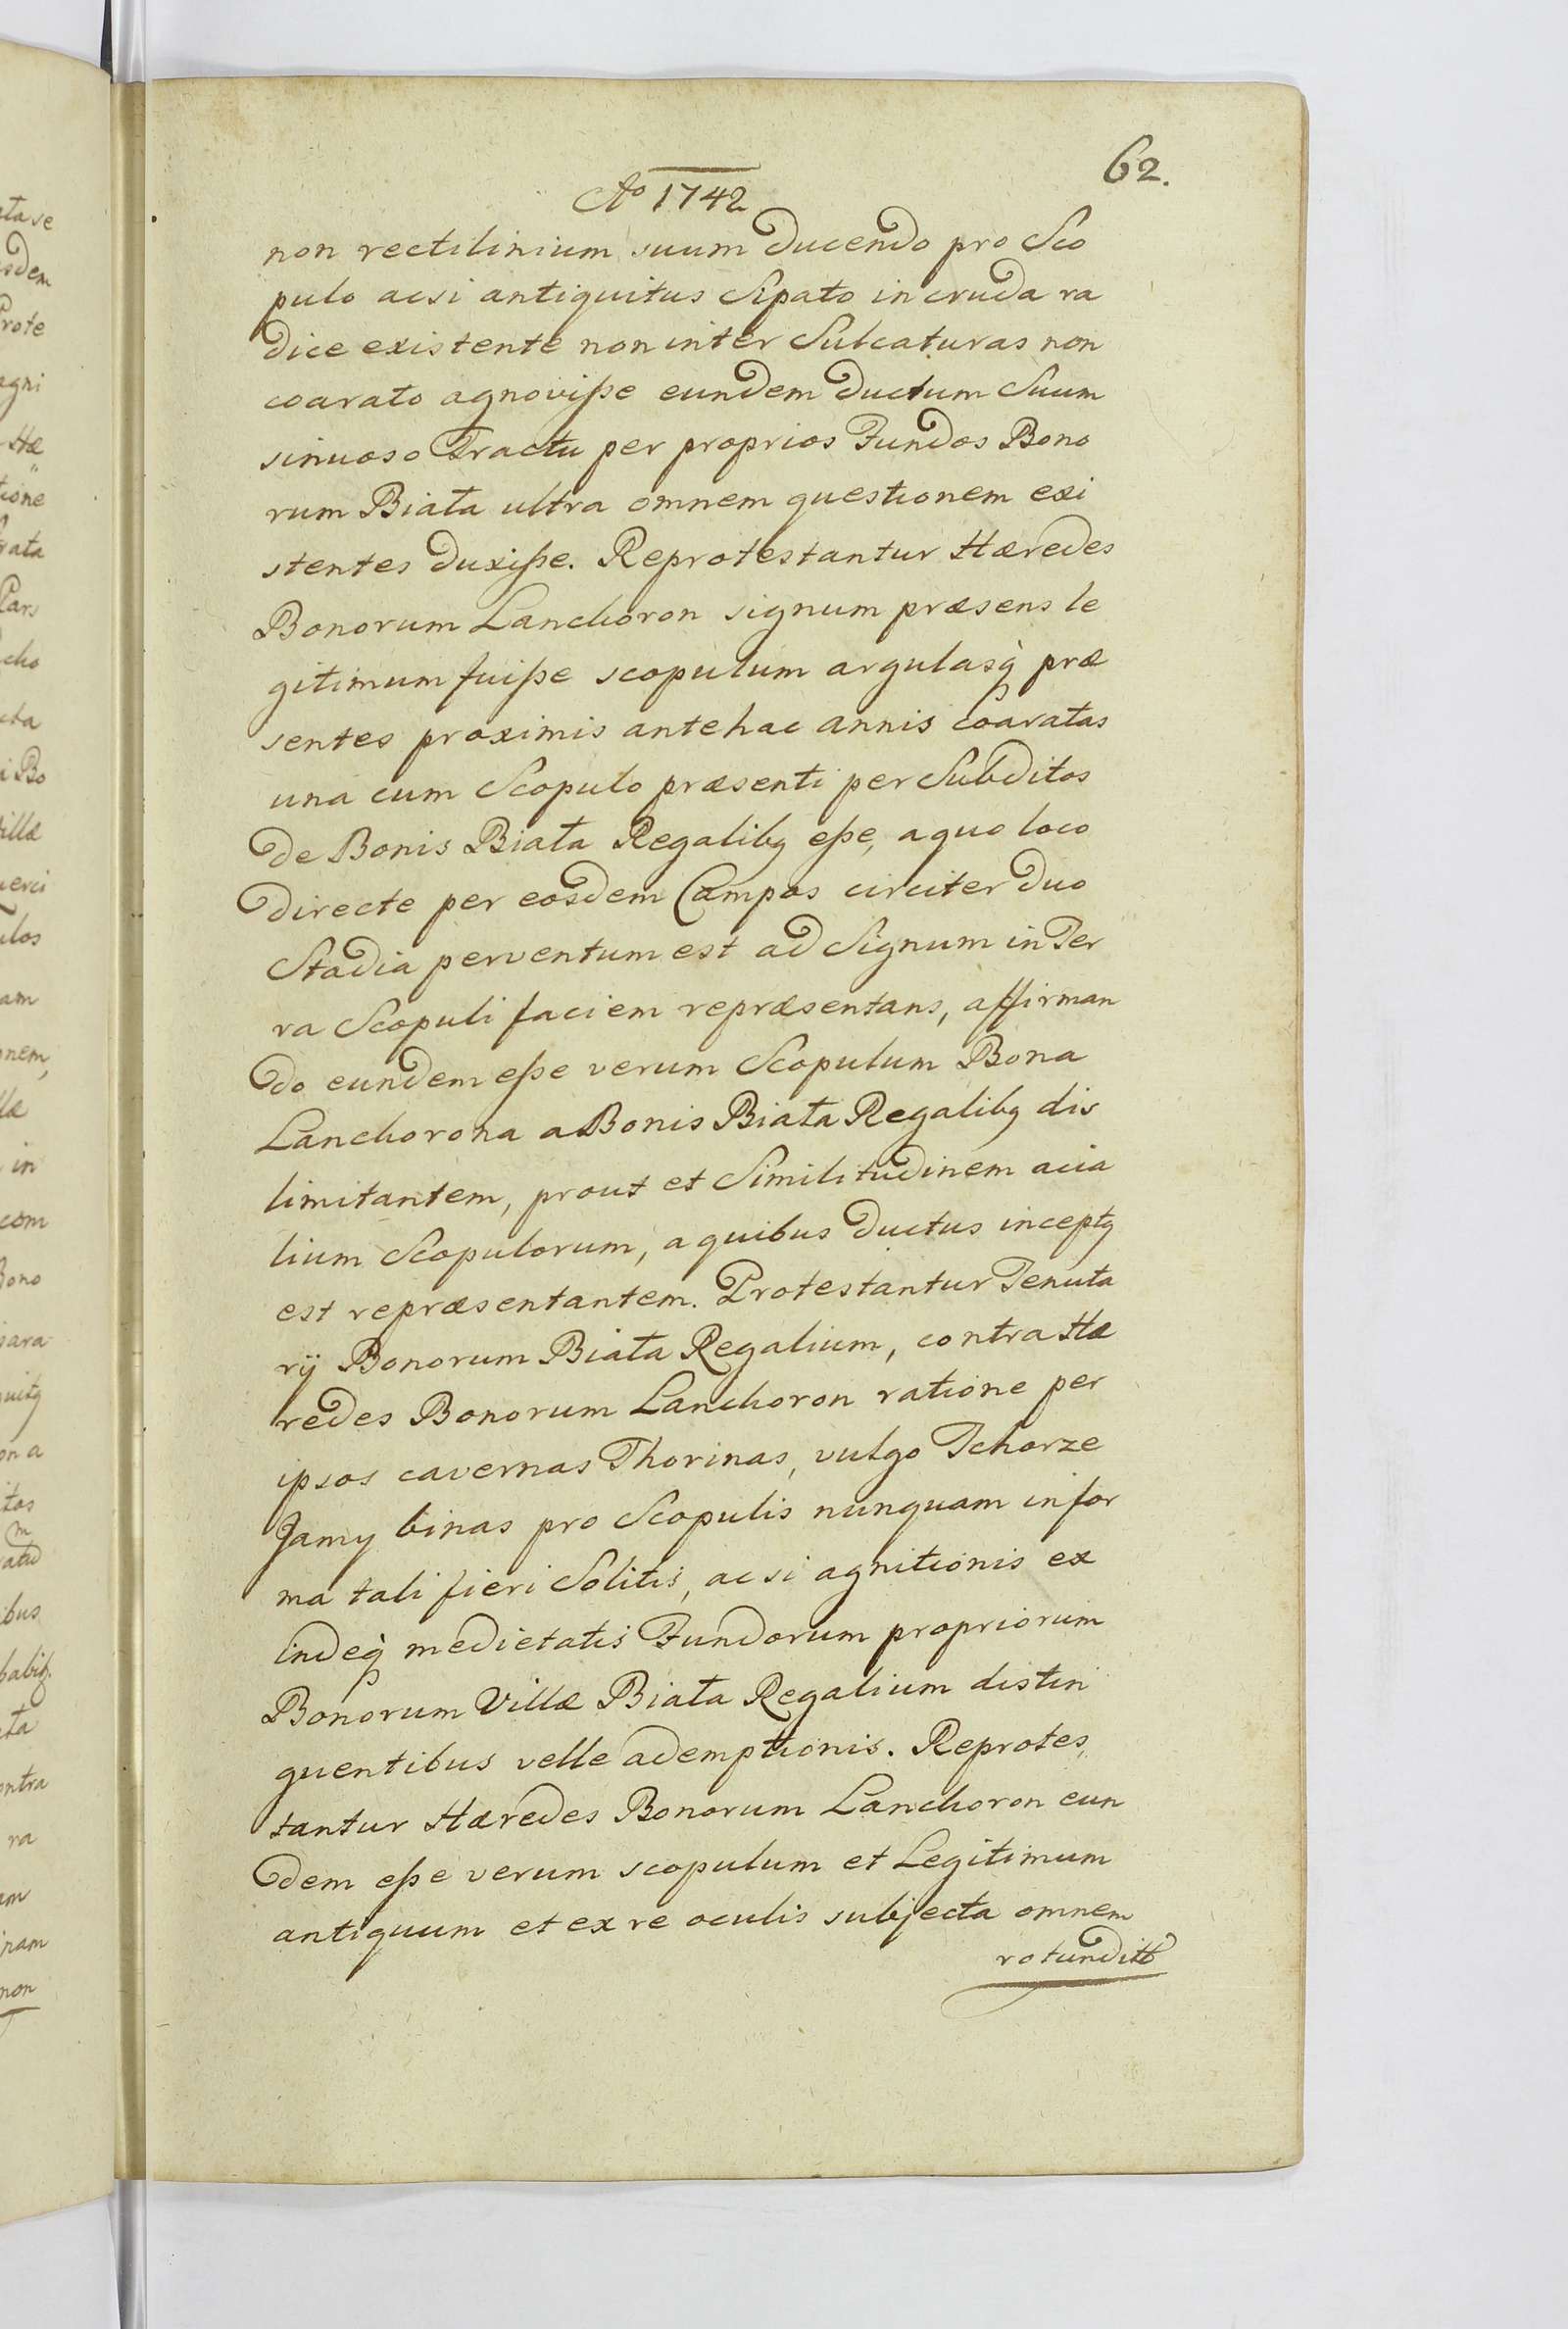 62.
Ao 1742
non rectilinium suum ducendo pro Sco
pulo acsi antiquitus Sipato in cruda ra
dice existente non inter Sulcaturas non
coarato agnoviſse eundem ductum Suum
sinuoso Tractu per proprios Fundos Bono
rum Biała ultra omnem questionem exi
stentes duxiſse. Reprotestantur Hæredes
Bonorum Lanckoron signum præsens le
gitimum fuiſse scopulum argulasq̀ præ
sentes proximis antehac annis coaratas
una cum Scopulo præsenti per Subditos
de Bonis Biała Regalibꝫ eſse, a quo loco
directe per eosdem Campos circiter duo
Stadia perventum est ad Signum in Ter
ra Scopuli faciem repræsentans, affirman
do eundem eſse verum Scopulum Bona
Lanckorona a Bonis Biała Regalibꝫ dis
limitantem, prout et Similitudinem acia
lium Scopulorum, a quibus ductus inceptꝫ
est repræsentantem. Protestantur Tenuta
rij Bonorum Biała Regalium, contra Hæ
redes Bonorum Lanckoron ratione per
ipsos cavernas Thorinas, vulgo Tchorze
Jamy binas pro Scopulis nunquam in for
ma tali fieri Solitis, acsi agnitionis ex
indeq̀ medietatis Fundorum propriorum
Bonorum Villæ Biała Regalium distin
guentibus velle ademptionis. Reprotes,,
tantur Hæredes Bonorum Lanckoron eun
dem eſse verum scopulum et Legitimum
antiquum et ex re oculis subjecta omnem
rotundit